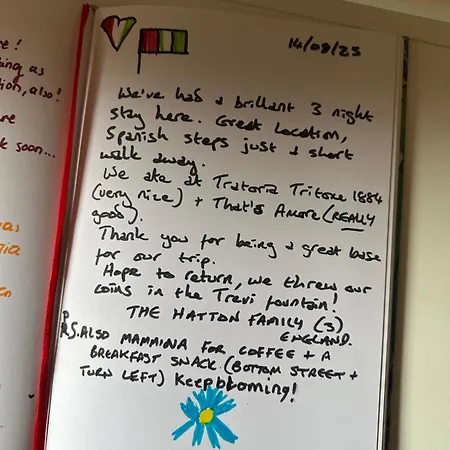 re !
ing as
tion, also!
re
k soon...
14/08/25
We've had a brillant 3 night
stay here. Great Location,
Spanish steps just a short
walk away.
We ate at Tratoria Tritone 1884
(very nice) + That's Amore (REALLY
good).
Thank you for being a great base
for our trip.
Hope to return, we threw our
coins in the Trevi fountain!
THE HATTON FAMILY (3)
ENGLAND.
P.S. ALSO MAMMINA FOR COFFEE + A
BREAKFAST SNACK (BOTTOM STREET +
TURN LEFT) Keep blooming!